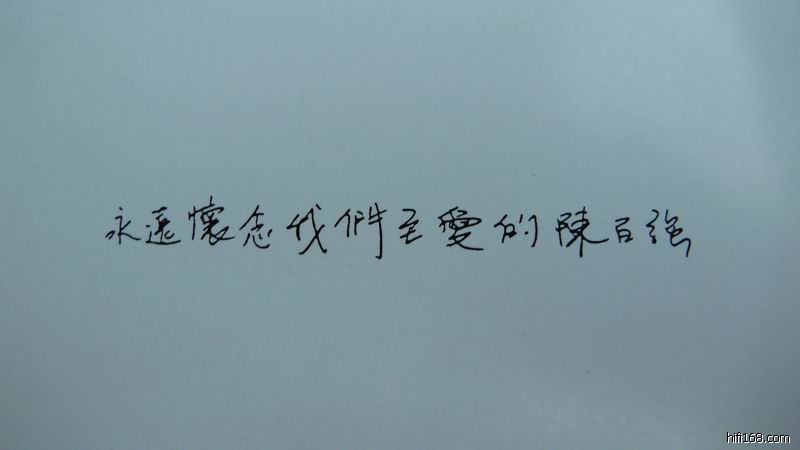 永遠懷念我們至愛的陳百強
hifi168.com